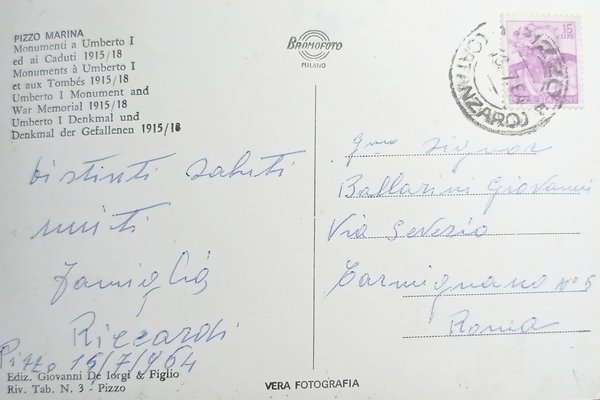 PIZZO MARINA
Monumenti a Umberto I
ed ai Caduti 1915/18
Monuments à Umberto I
et aux Tombés 1915/18
Umberto I Monument and
War Memorial 1915/18
Umberto I Denkmal und
Denkmal der Gefallenen 1915/18
Distinti saluti
uniti
famiglia
Riccardi
Pizzo 15/7/964
Ediz. Giovanni De Iorgi & Figlio
Riv. Tab. N. 3 - Pizzo
BROMOFOTO
MILANO
VERA FOTOGRAFIA
15
Signor
Ballarini Giovanni
Via Severio
Carmignano n° 5
Roma